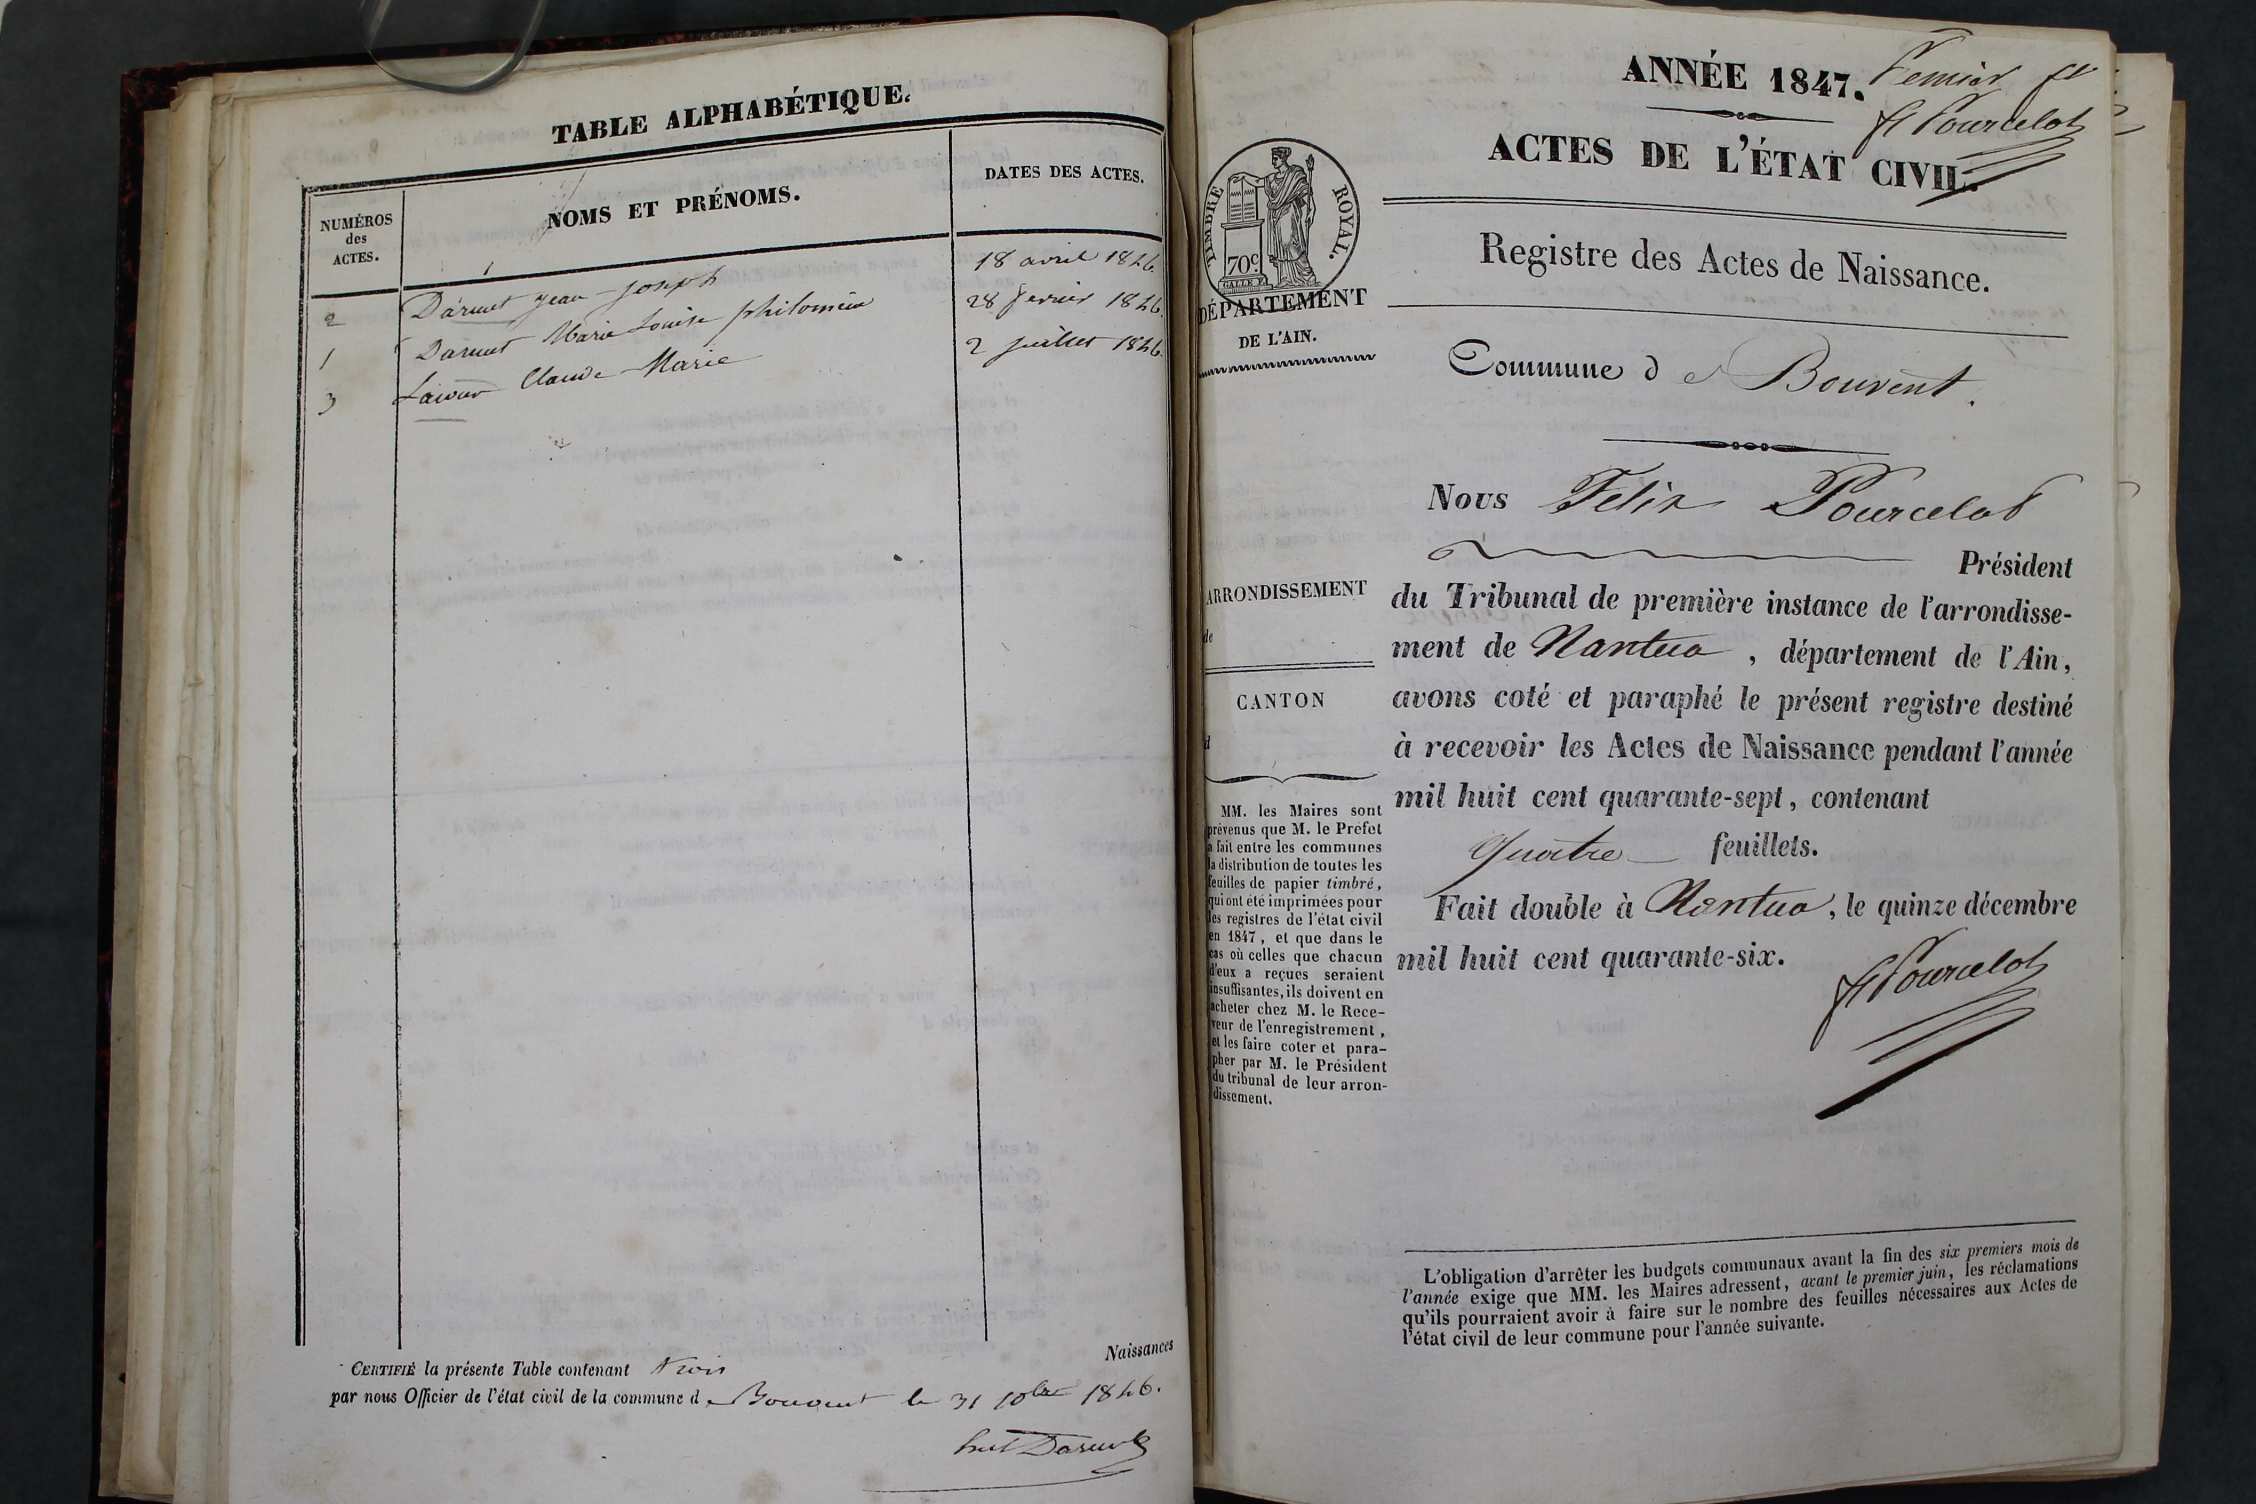 TABLE ALPHABÉTIQUE.
NUMÉROS
des
ACTES.
NOMS ET PRÉNOMS.
DATES DES ACTES.
2 Darmet Jean-Joseph 18 avril 1846.
1 Darmet Marie Louise philomène 28 fevrier 1846.
3 Claude Marie 2 juillet 1846.
CERTIFIÉ la présente Table contenant trois Naissances
par nous Officier de l'état civil de la commune de Bouvent le 31 10bre 1846.
Darmet
ANNÉE 1847.
Pourcelot
ACTES DE L'ÉTAT CIVIL.
Registre des Actes de Naissance.
TIMBRE ROYAL.
70c.
DÉPARTEMENT
DE L'AIN.
Commune de Bouvent.
Nous Felix Pourcelot
Président
du Tribunal de première instance de l'arrondisse-
ment de Nantua, département de l'Ain,
avons coté et paraphé le présent registre destiné
à recevoir les Actes de Naissance pendant l'année
mil huit cent quarante-sept, contenant
quatre feuillets.
Fait double à Nantua, le quinze décembre
mil huit cent quarante-six.
Pourcelot
ARRONDISSEMENT
de
CANTON
d
MM. les Maires sont
prévenus que M. le Préfet
a fait entre les communes
la distribution de toutes les
feuilles de papier timbré,
qui ont été imprimées pour
les registres de l'état civil
en 1847, et que dans le
cas où celles que chacun
d'eux a reçues seraient
insuffisantes, ils doivent en
acheter chez M. le Rece-
veur de l'enregistrement,
et les faire coter et para-
pher par M. le Président
du tribunal de leur arron-
dissement.
L'obligation d'arrêter les budgets communaux avant la fin des six premiers mois de
l'année exige que MM. les Maires adressent, avant le premier juin, les réclamations
qu'ils pourraient avoir à faire sur le nombre des feuilles nécessaires aux Actes de
l'état civil de leur commune pour l'année suivante.